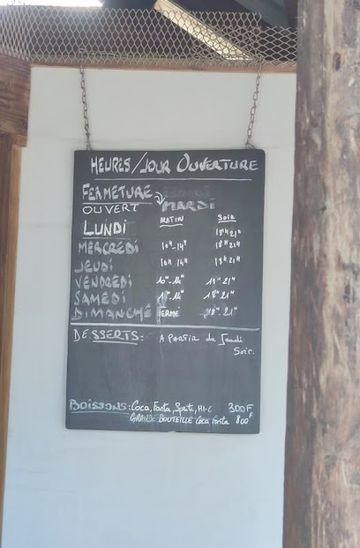 HEURES/JOUR OUVERTURE
FERMETURE
OUVERT MARDI
MATIN SOIR
LUNDI 18H 21H
MERCREDI 10H-14H 18H 21H
JEUDI 10H-14H 18H 21H
VENDREDI 10H-14H 18H 21H
SAMEDI 18H 21H
DIMANCHE FERMÉ 18H-21H
DESSERTS: A PARTIR du Jeudi
Soir.
BOISSONS: Coca, Fanta, Sprite, HI-C 300F
GRANDE BOUTEILLE Coca Fanta 800F